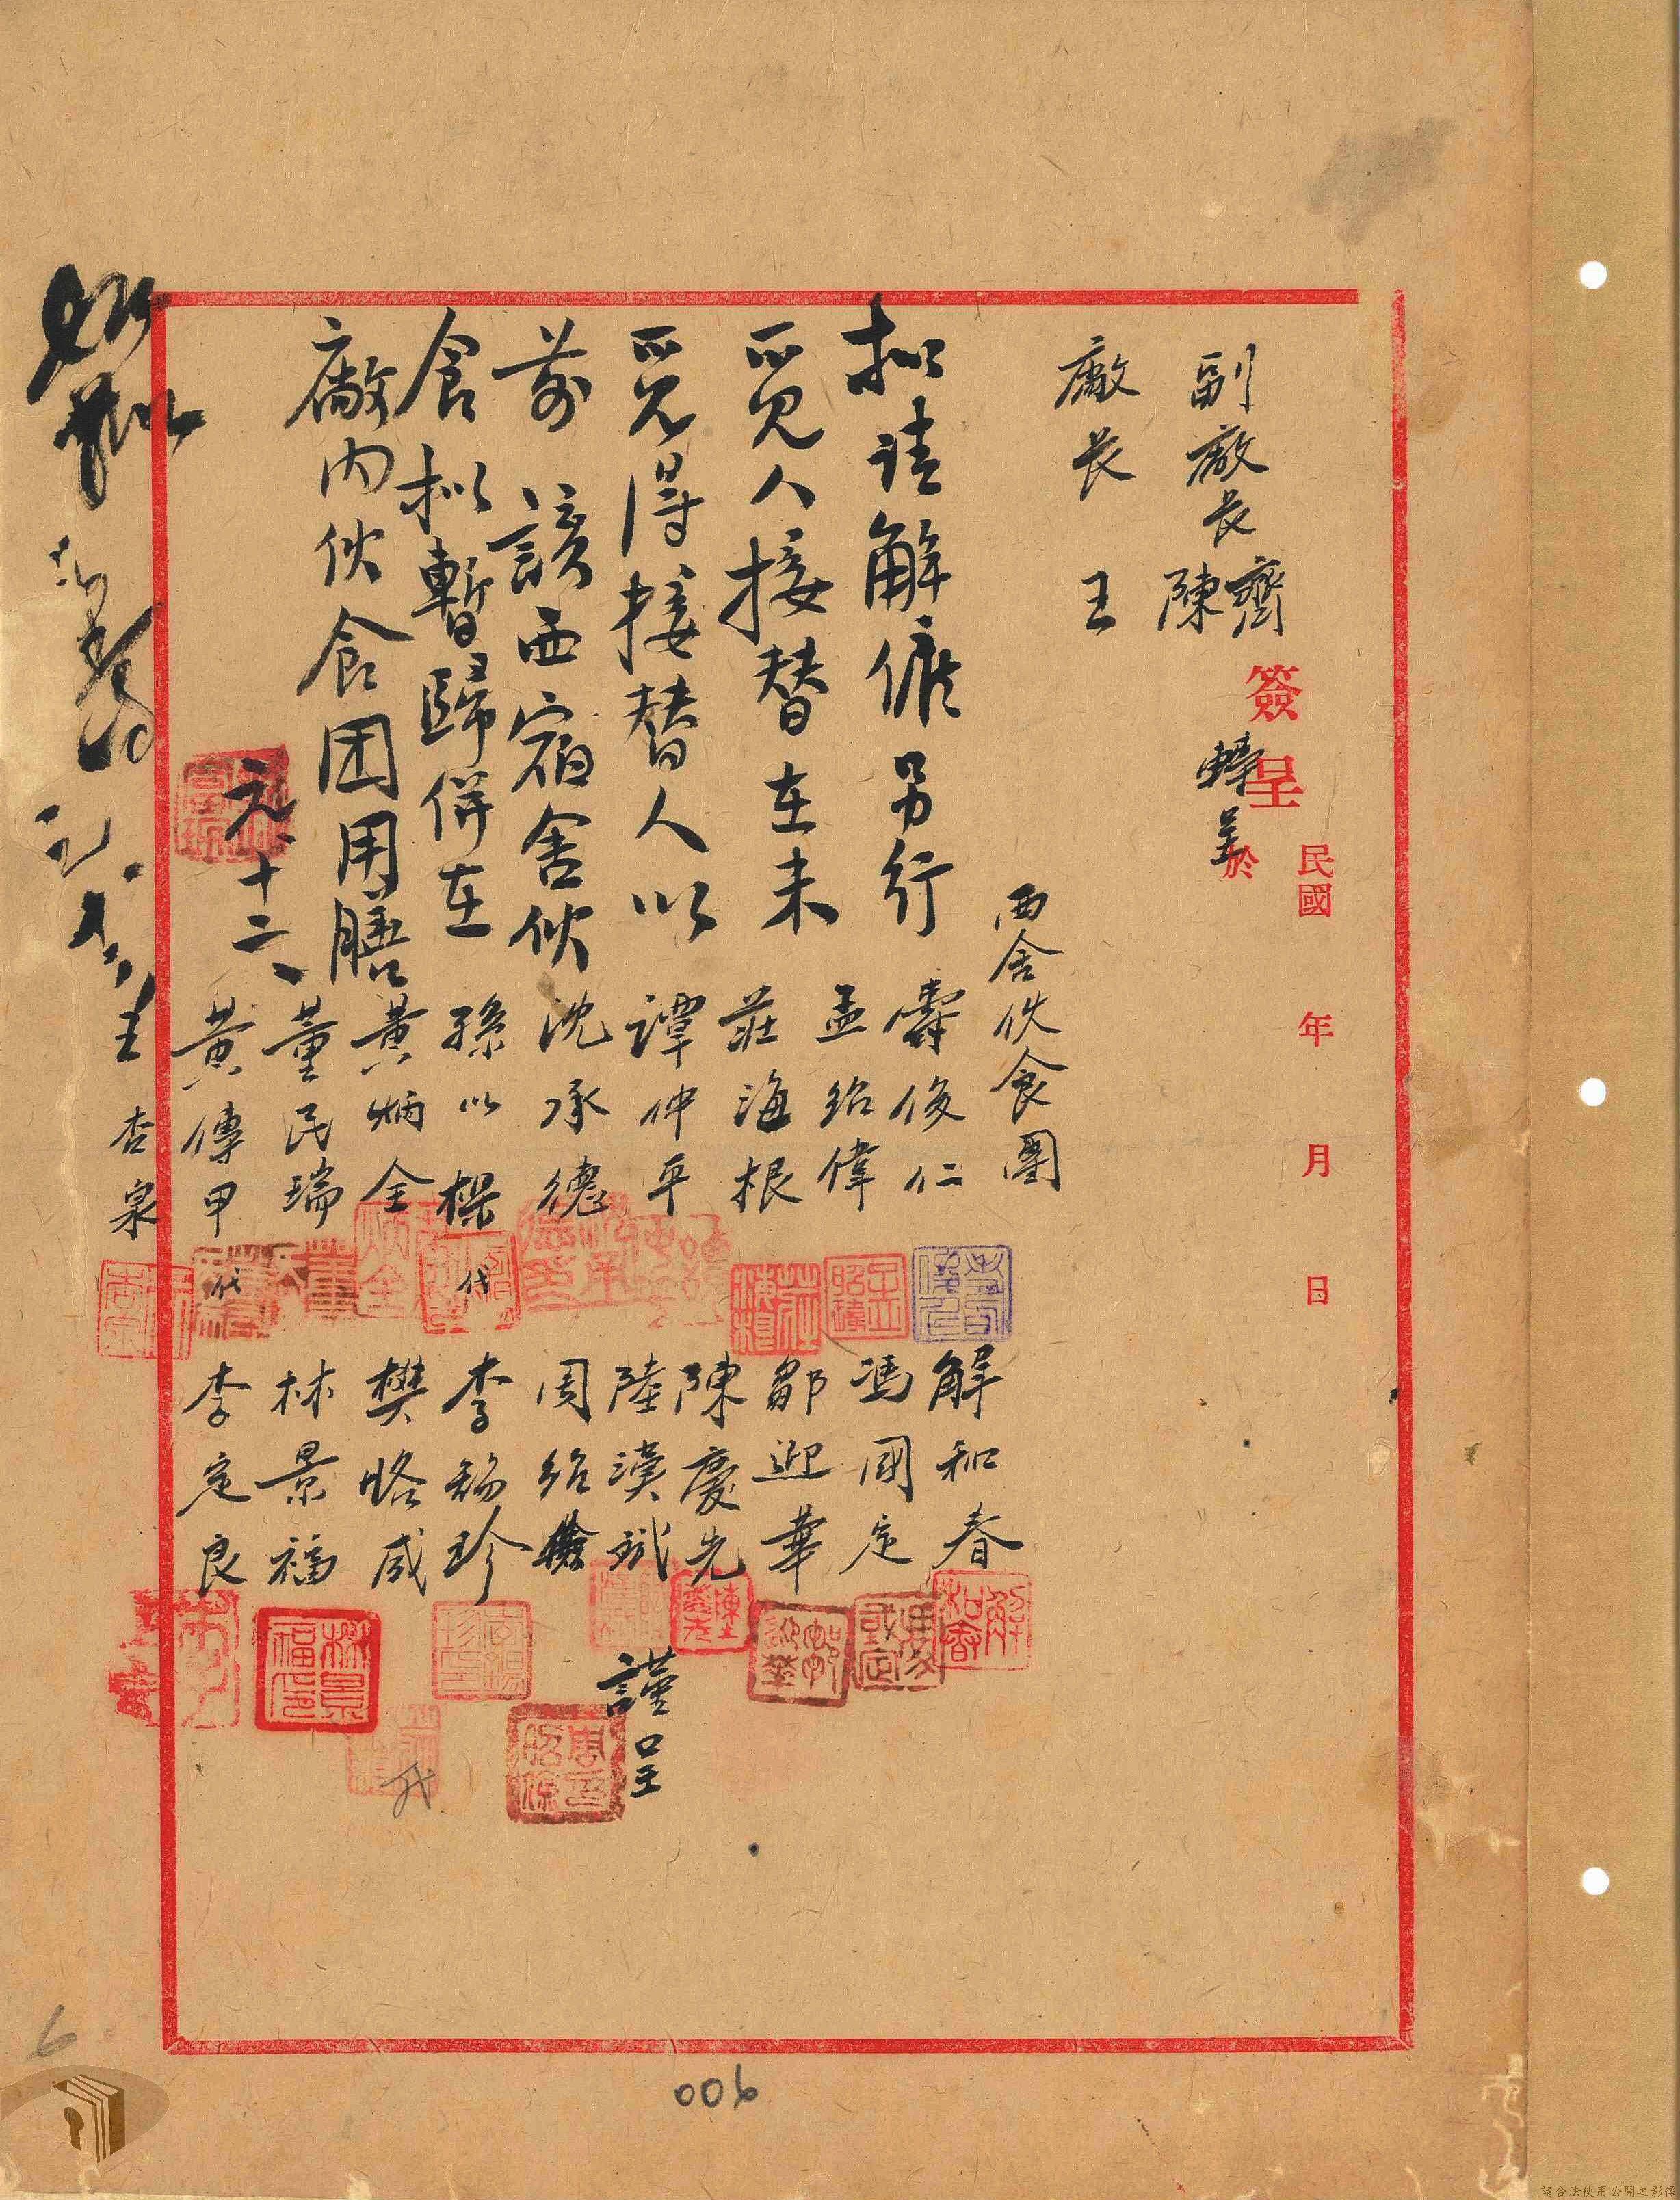 簽呈 於
民國 年 月 日
副廠長 齊 陳 轉呈
廠長 王
西舍伙食團
擬請解僱另行
覓人接替在未
覓得接替人以
前 該西宿舍伙
食擬暫歸併在
廠内伙食团用膳
元、十二、
俊仁
孟紹偉
莊海根
譚仲平
沈承德
孫以樑 代
黃炳全
董民瑞
黃傳甲 代
王杏泉
解和春
馮國定
鄒迎華
陳慶先
陸漢斌
周紹
李錫珍
樊略咸 代
林景福
李定良
謹呈
照擬
006
6
請合法使用公開之影像